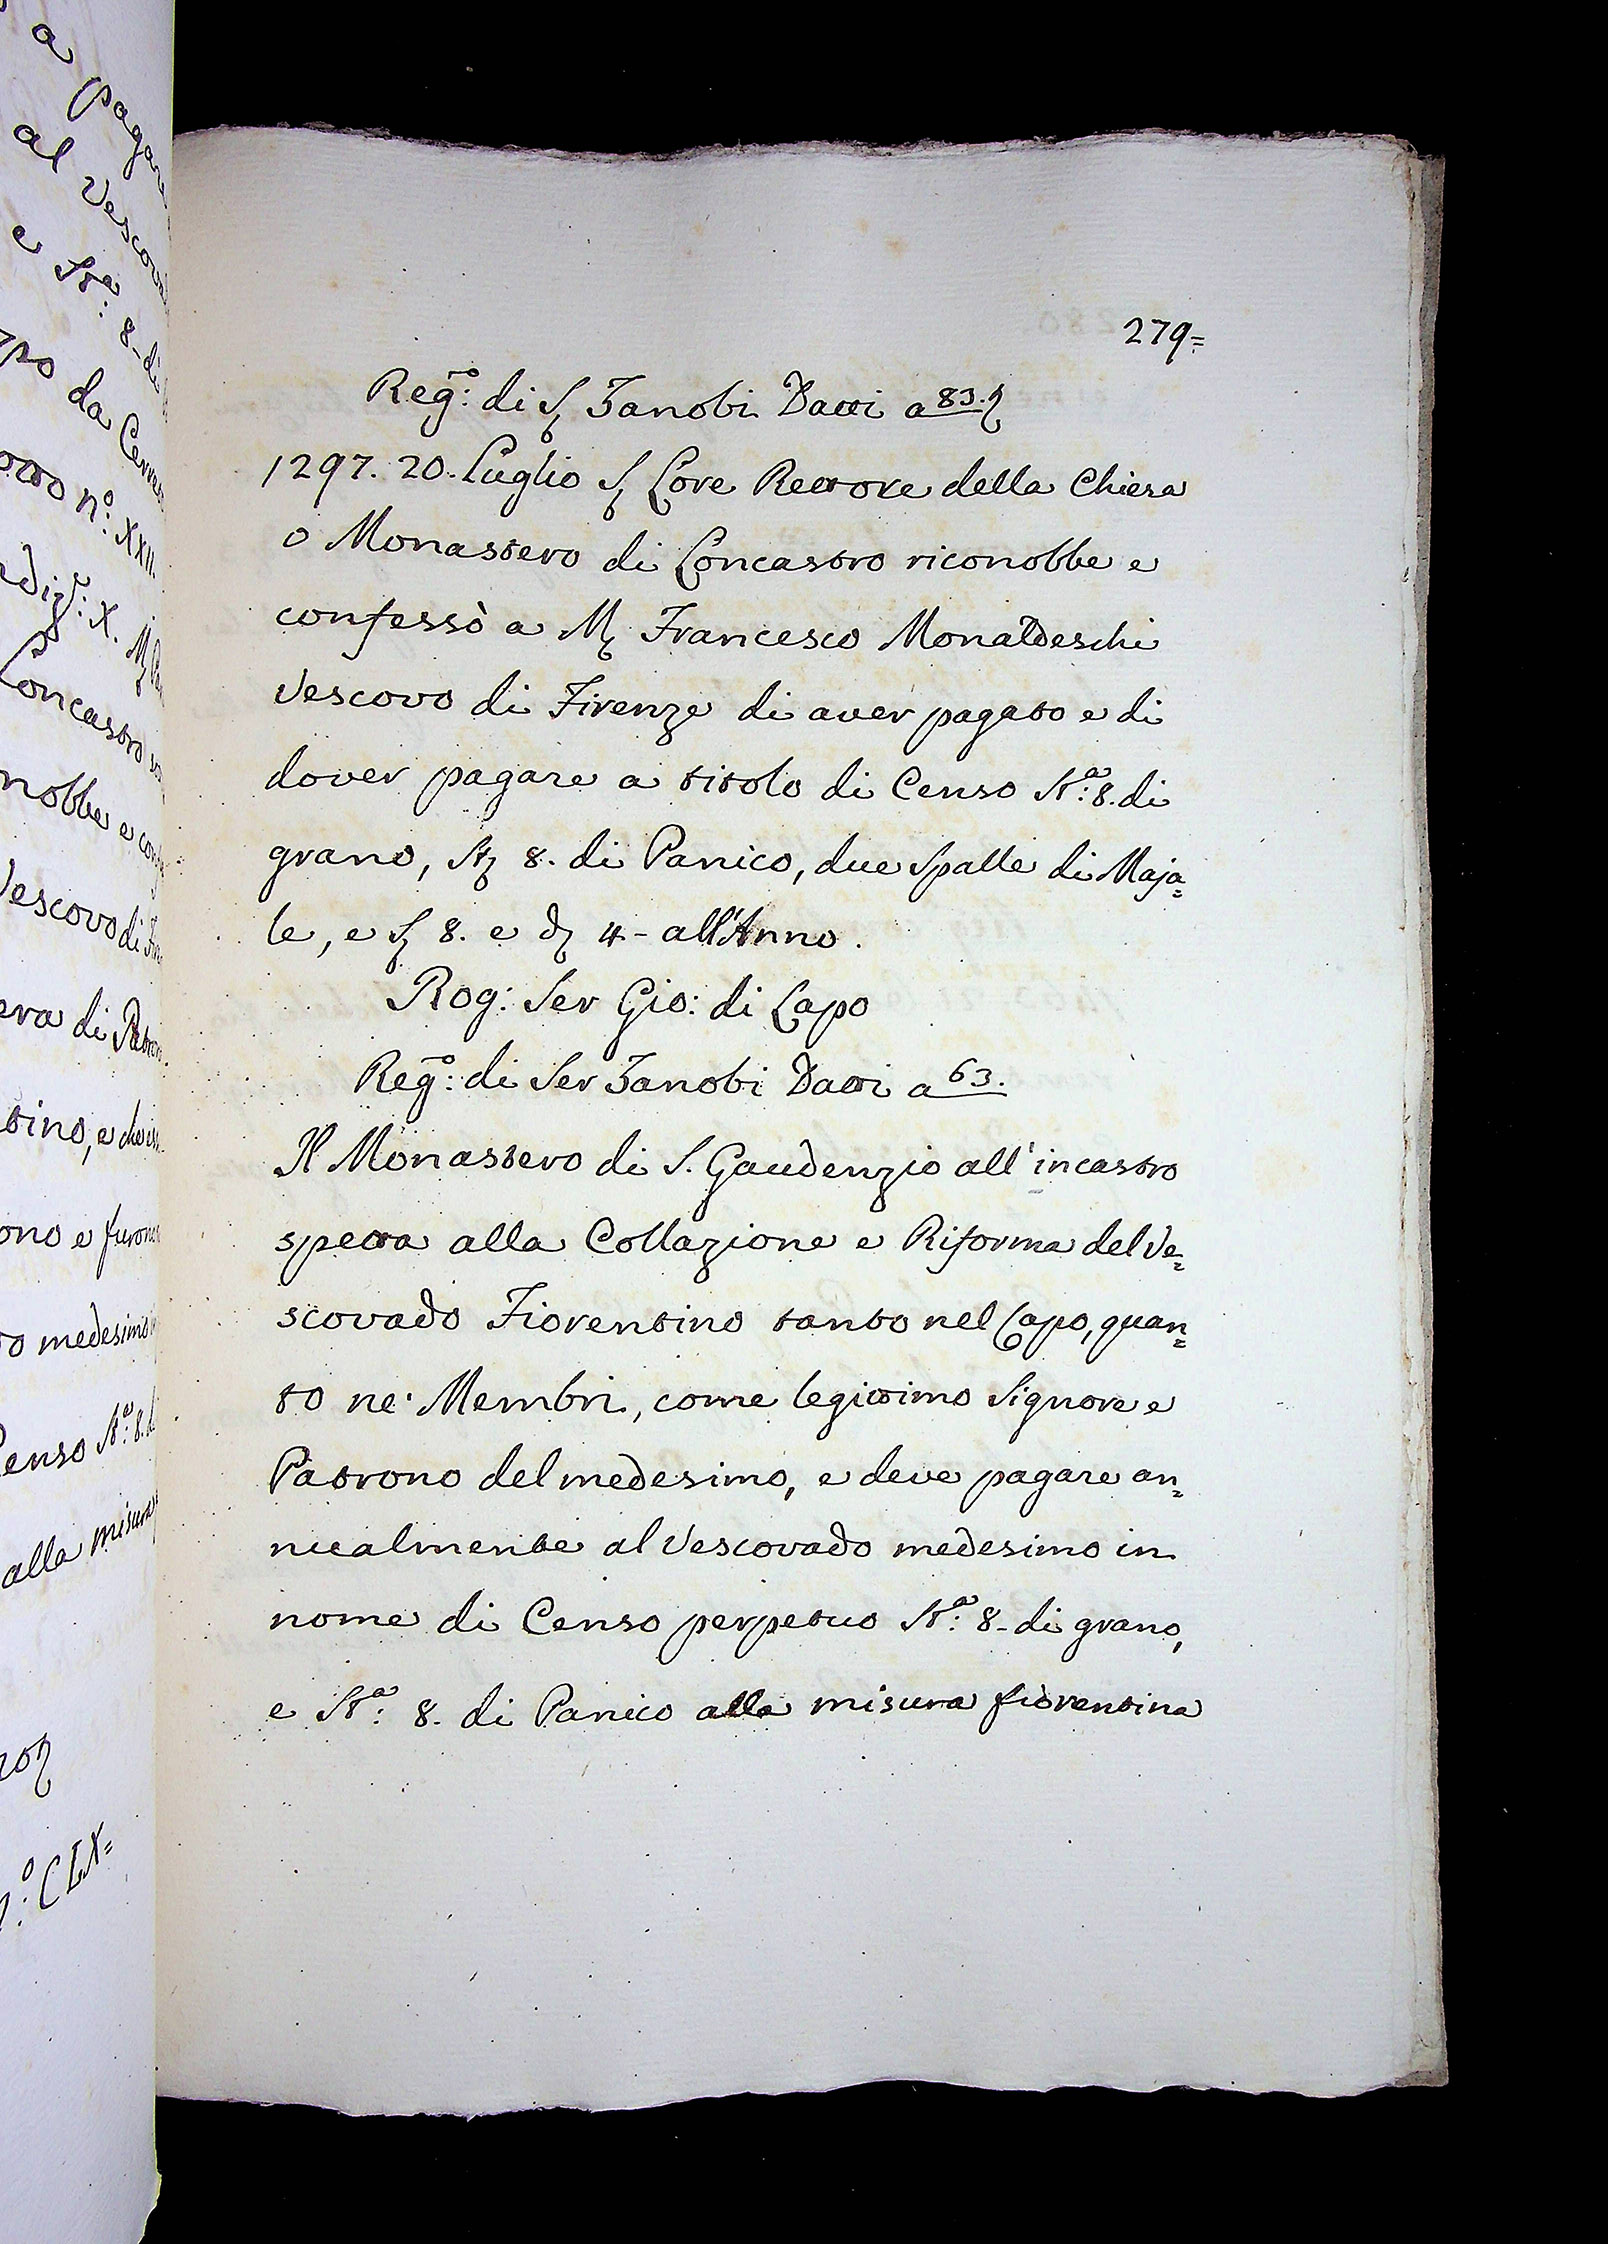 a pagare
al Vescova
e St.ª: 8. di
po da
n.º: XXII.
X.
Concastro
nobbe e
Vescovo di
era di
tino, e che
ono e furono
to medesimo
Censo St.ª: 8.
alla misura
n.º: CLX=
279=
Reg.º: di S. Zanobi Datti a 83.
1297. 20. Luglio S. Core Rettore della Chiesa
o Monastero di Concastro riconobbe e
confessò a M. Francesco Monaldeschi
Vescovo di Firenze di aver pagato e di
dover pagare a titolo di Censo St.ª: 8. di
grano, St. 8. di Panico, due Spalle di Maja=
le, e S. 8. e d. 4 - all'Anno.
Rog: Ser Gio: di Lapo
Reg.º: di Ser Zanobi Datti a 63.
Il Monastero di S. Gaudenzio all'incastro
spetta alla Collazione e Riforma del Ve=
scovado Fiorentino tanto nel Capo, quan=
to ne' Membri, come legittimo Signore e
Patrono del medesimo, e deve pagare an=
nualmente al Vescovado medesimo in
nome di Censo perpetuo St.ª: 8. di grano,
e St.ª: 8. di Panico alla misura fiorentina